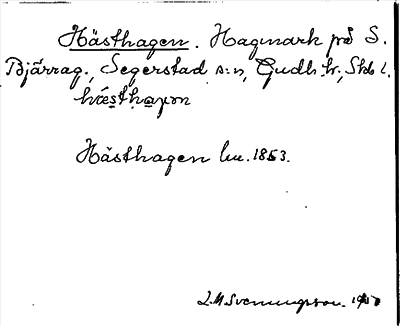 Hästhagen. Hagmark på S.
Bjärrag., Segerstad s:n, Gudh. hr, Skb l.
hæsthaγon
Hästhagen lm. 1853.
L.M. Svenungsson. 1950